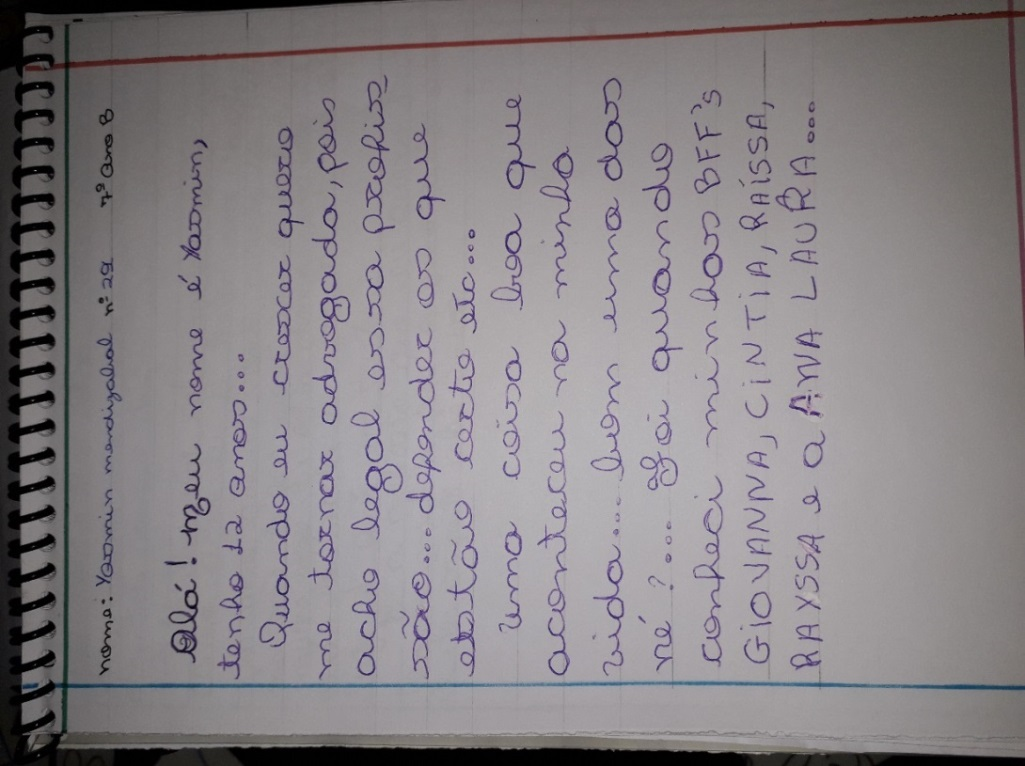 nome: Yasmin mendizabal n° 29 7° ano B
Olá! meu nome é Yasmin,
tenho 12 anos...
Quando eu crescer quero
me tornar advogada, pois
acho legal essa profis
são... defender os que
estão certo etc...
uma coisa boa que
aconteceu na minha
vida... bom uma das
né?... foi quando
conheci minhas BFF's
GIOVANNA, CINTIA, RAÍSSA,
RAYSSA e a ANA LAURA...